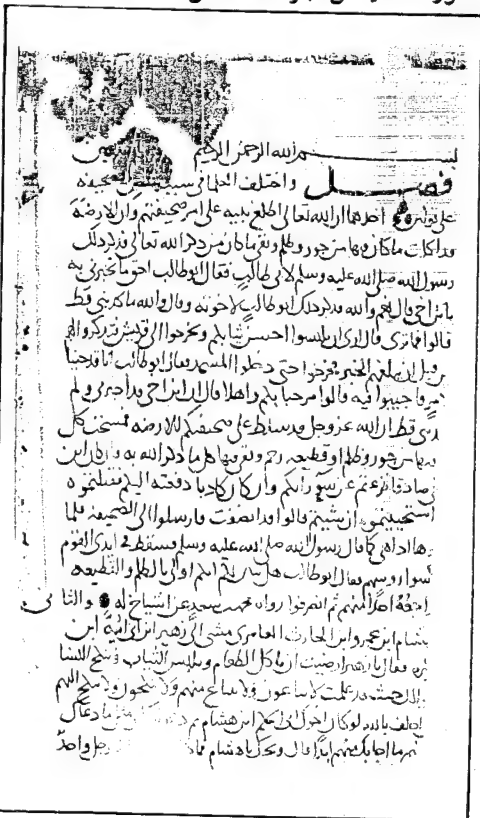 بسم الله الرحمن الرحيم
فصل واختلف العلما في سبب نقض الصحيفه
على قولين احدهما ان الله تعالى اطلع نبيه على امر صحيفتهم وان الارضة
قد اكلت ما كان فيها من جور وظلم وبقى ما كان من ذكر الله تعالى فذكر ذلك
رسول الله صلى الله عليه وسلم لابي طالب فقال ابو طالب احق ما تخبرني به
يا ابن اخي قال نعم والله فذكر ذلك ابو طالب لاخوته وقال والله ما كذبني قط
قالوا فما ترى قال ارى ان تلبسوا احسن ثيابكم وتخرجوا الى قريش فتذكروا لهم
قبل ان يبلغهم الخبر فخرجوا حتى دخلوا المسجد فقال ابو طالب انا قد جينا
فاجيبوا فيه قالوا مرحبا بكم واهلا قال ان ابن اخي قد اخبرني ولم
قط ان الله عز وجل قد سلط على صحيفتكم الارضة فمسحت كل
من جور وظلم او قطيعه رحم وبقي فيها كل ما ذكر الله به فان كان ابن
صادقا نزعتم عن سو رايكم وان كان كاذبا دفعته اليكم فقتلتموه
استحييتموه ان شيتم قالوا قد انصفت فارسلوا الى الصحيفه فلما
اذا هي كما قال رسول الله صلى الله عليه وسلم فسقط في ايدي القوم
روسهم فقال ابو طالب هل تبين لكم انكم اولى بالظلم والقطيعه
احد منهم ثم انصرفوا رواه محمد بن سعد عن اشياخ له والثاني
هشام ابن عمرو ابن الحارث العامري مشى الى زهير ابن ابي امية ابن
فقال يا زهير ارضيت ان تاكل الطعام وتلبس الثياب وتنكح النسا
حيث قد علمت لا يباعون ولا يبتاع منهم ولا ينكحون ولا ينكح اليهم
احلف بالله لو كان اخوال ابي الحكم ابن هشام ثم دعوته الى مثل ما دعاك
ما اجابك منهم ابدا قال ويحك يا هشام فما رجل واحد